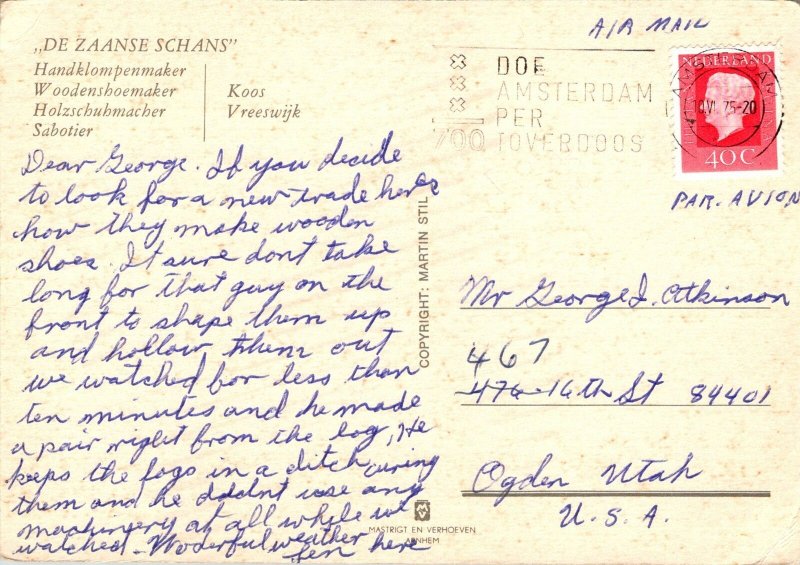 „DE ZAANSE SCHANS”
Handklompenmaker
Woodenshoemaker
Holzschuhmacher
Sabotier
Koos
Vreeswijk
Dear George. If you decide
to look for a new trade heres
how they make wooden
shoes. It sure dont take
long for that guy on the
front to shape them up
and hollow them out
we watched for less than
ten minutes and he made
a pair right from the log, He
keeps the logs in a ditch curing
them and he didnt use any
machinery at all while we
watched - Woderful weather
here
COPYRIGHT: MARTIN STIL
MASTRIGT EN VERHOEVEN
ARNHEM
AIR MAIL
DOE
AMSTERDAM
PER
TOVERDOOS
700
NEDERLAND
AMSTERDAM
VI. 75-20
40 C
PAR. AVION
Mr George J. Atkinson
467
476-16th St 84401
Ogden Utah
U. S. A.